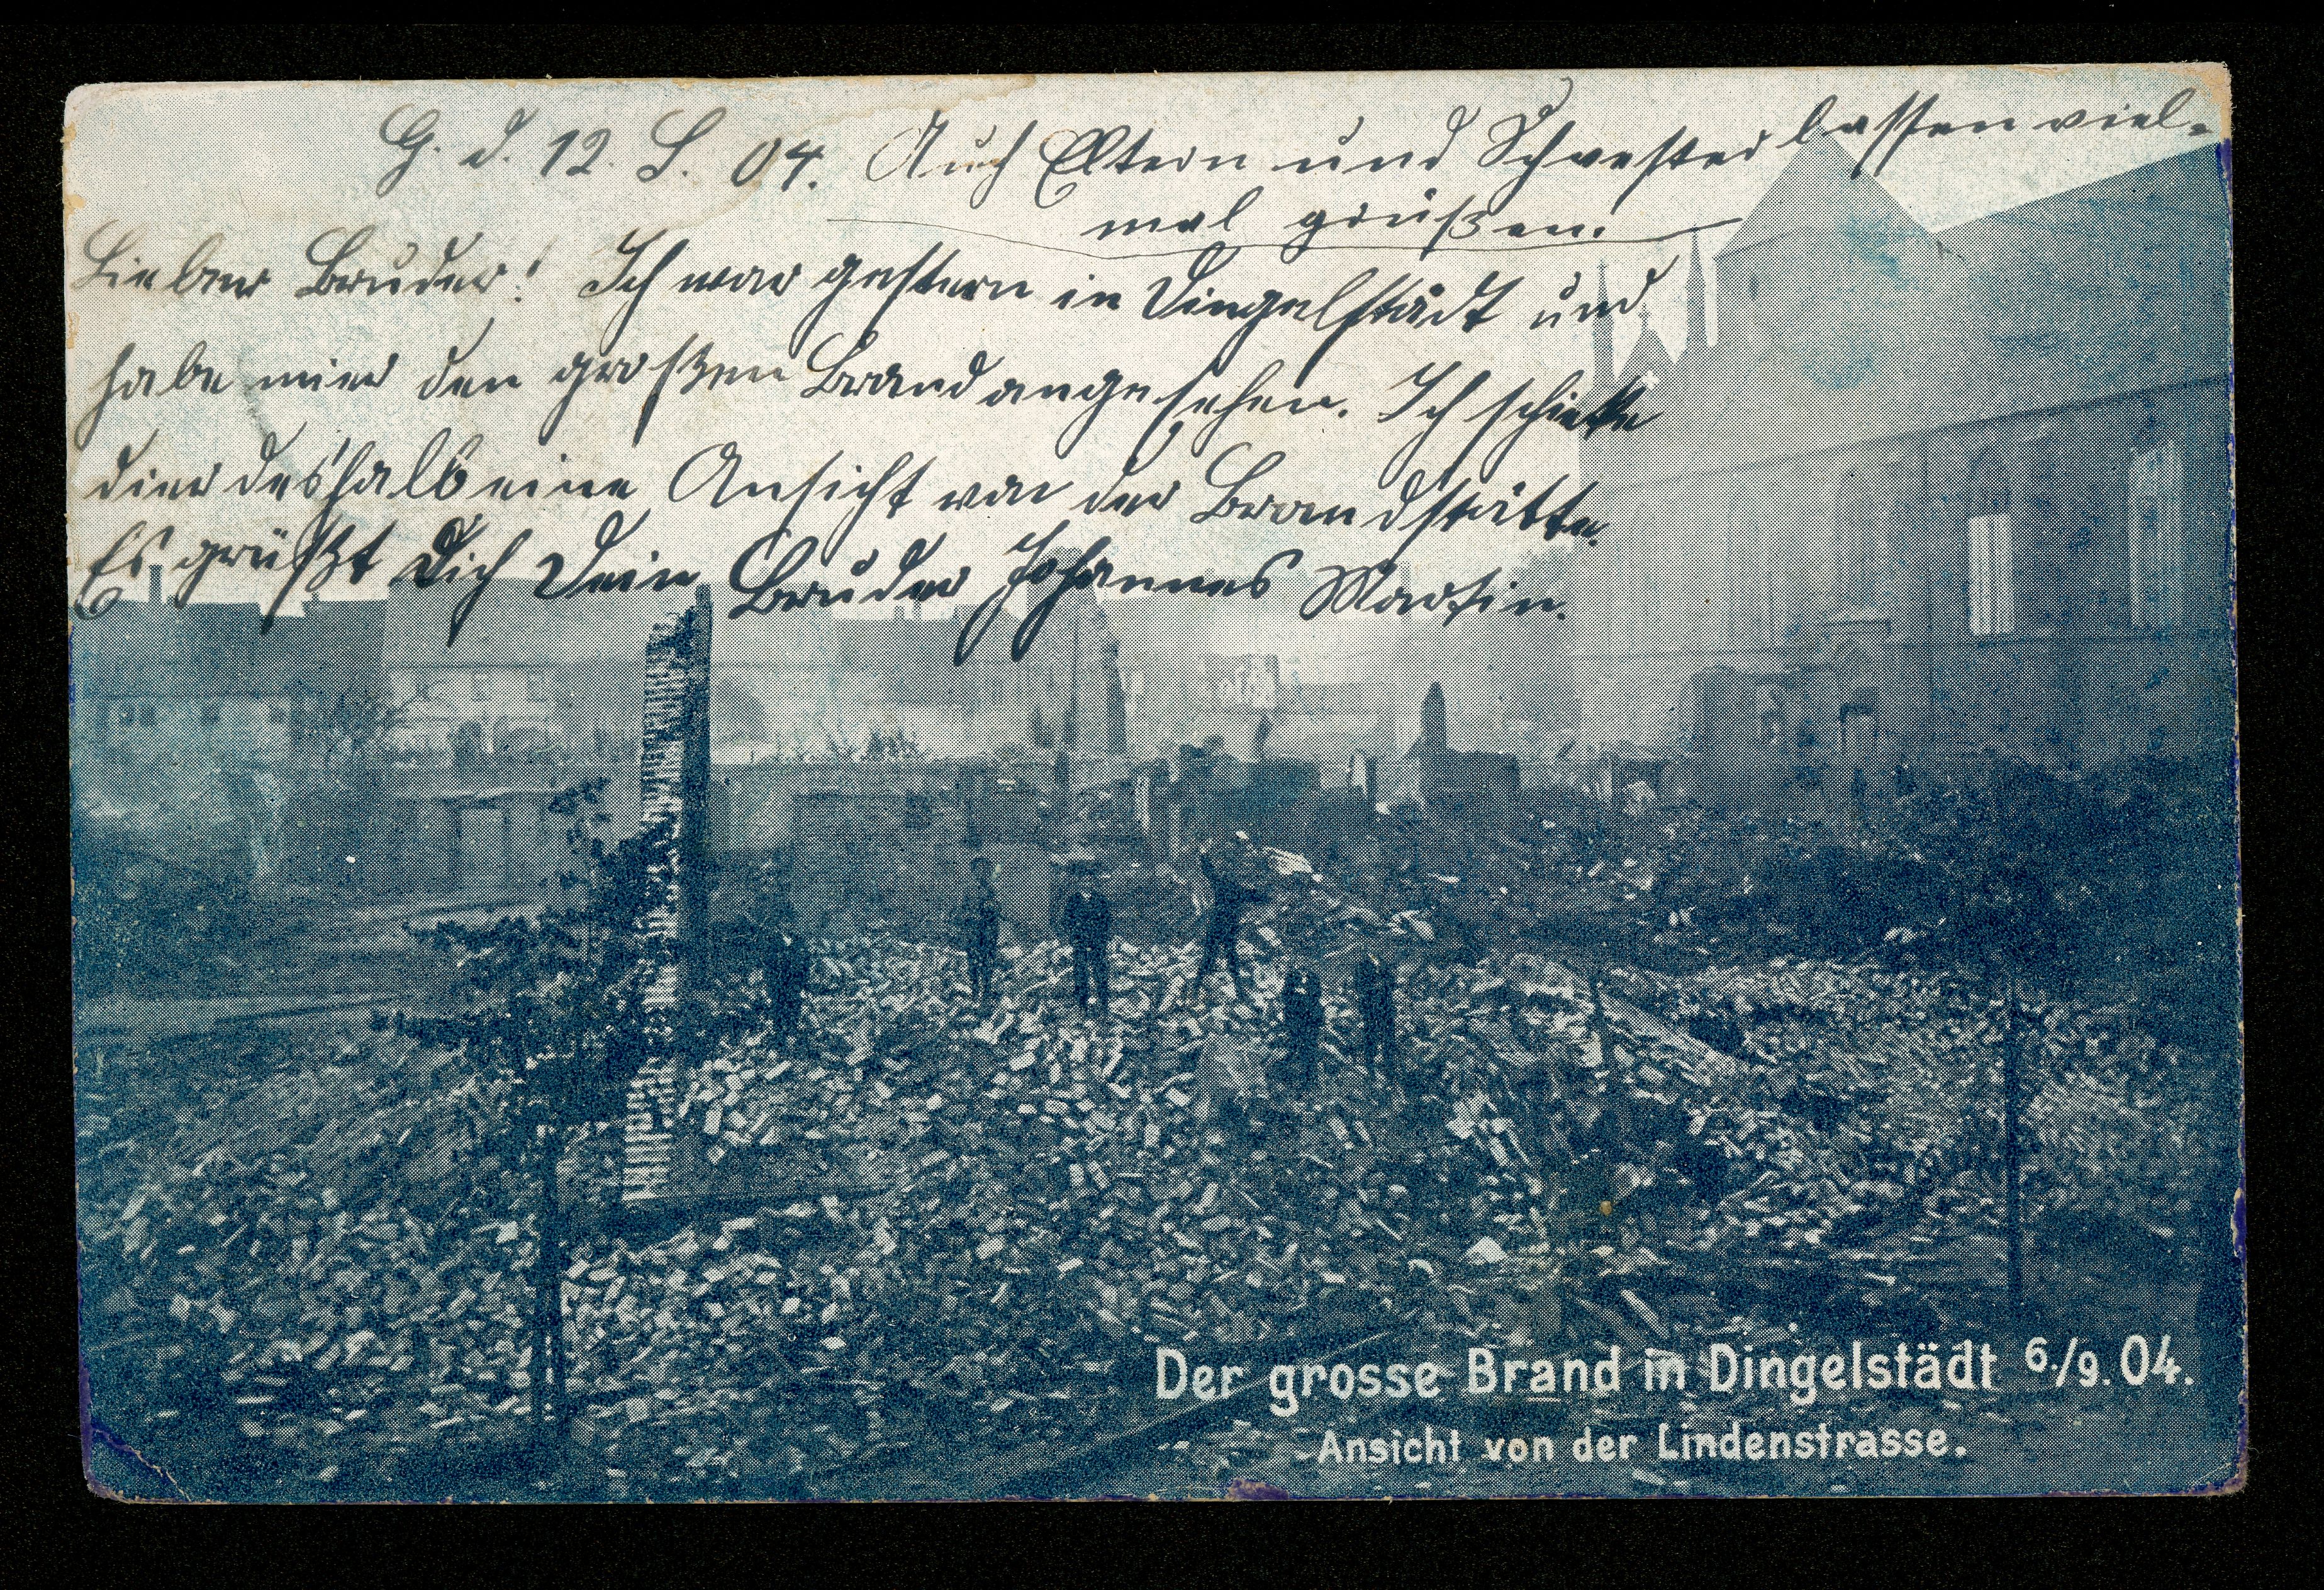 G. d. 12. S. 04. Auch Eltern und Schwester lassen viel-
mal grüßen.
Lieber Bruder! Ich war gestern in Dingelstädt und
habe mier den großen Brand angesehen. Ich schicke
dier deshalb eine Ansicht von der Brandstätte.
Es grüßt Dich Dein Bruder Johannes Martin.
Der grosse Brand in Dingelstädt 6./9. 04.
Ansicht von der Lindenstrasse.